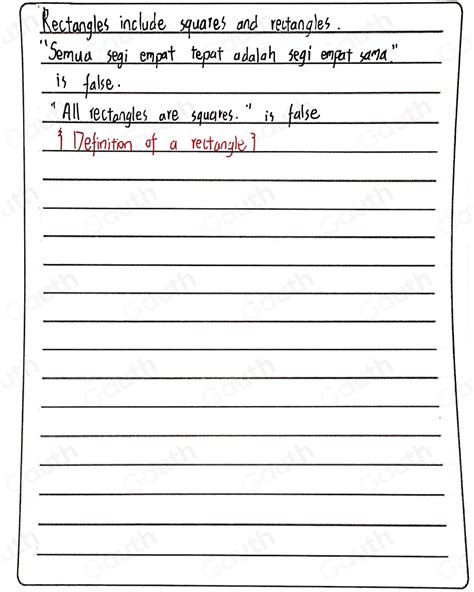 Rectangles include squares and rectangles.
"Semua segi empat tepat adalah segi empat sama."
is false.
"All rectangles are squares." is false
{ Definition of a rectangle }